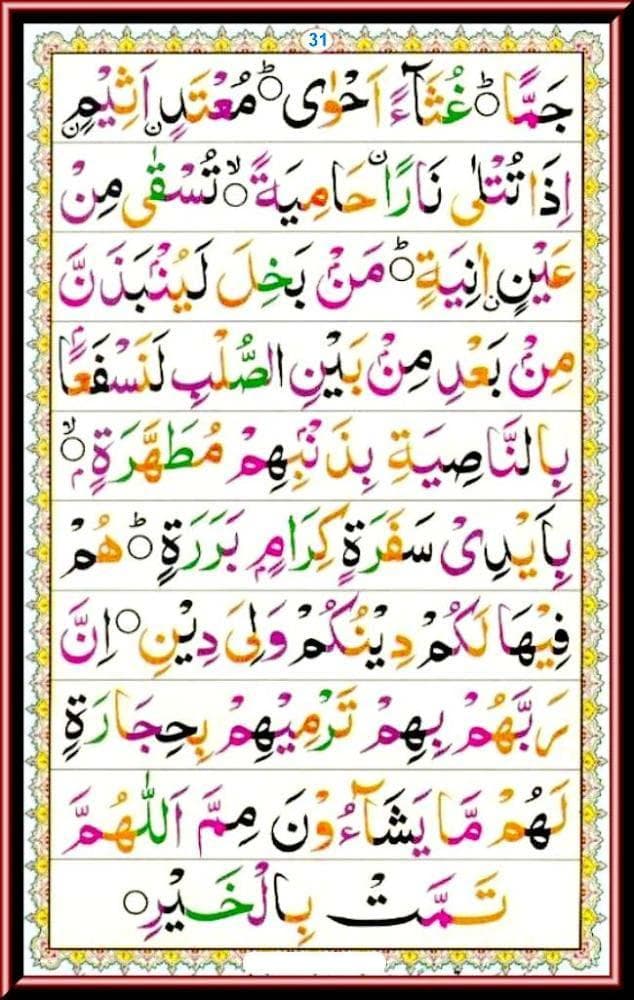 31
جَمًّا ؕ○ غُثَآءً اَحْوٰى ؕ○ مُعْتَدٍ اَثِيْمٍۙ
اِذَا تُتْلٰى نَارًا حَامِيَةً ۙ○ تُسْقٰى مِنْ
عَيْنٍ اٰنِيَةٍ ؕ○ مَنْۢ بَخِلَ لَيُنْۢبَذَنَّ
مِنْۢ بَعْدِ مِنْۢ بَيْنِ الصُّلْبِ لَنَسْفَعًۢا
بِالنَّاصِيَةِ بِذَنْۢبِهِمْ مُطَهَّرَةٍۭ ۙ○
بِاَيْدِىْ سَفَرَةٍ كِرَامٍۭ بَرَرَةٍ ؕ○ هُمْ
فِيْهَا لَكُمْ دِيْنُكُمْ وَلِىَ دِيْنِ ○ اِنَّ
رَبَّهُمْ بِهِمْ تَرْمِيْهِمْ بِحِجَارَةٍ
لَهُمْ مَّا يَشَآءُوْنَ مِمَّ اَللّٰهُمَّ
تَمَّتْ بِالْخَيْرِ ○